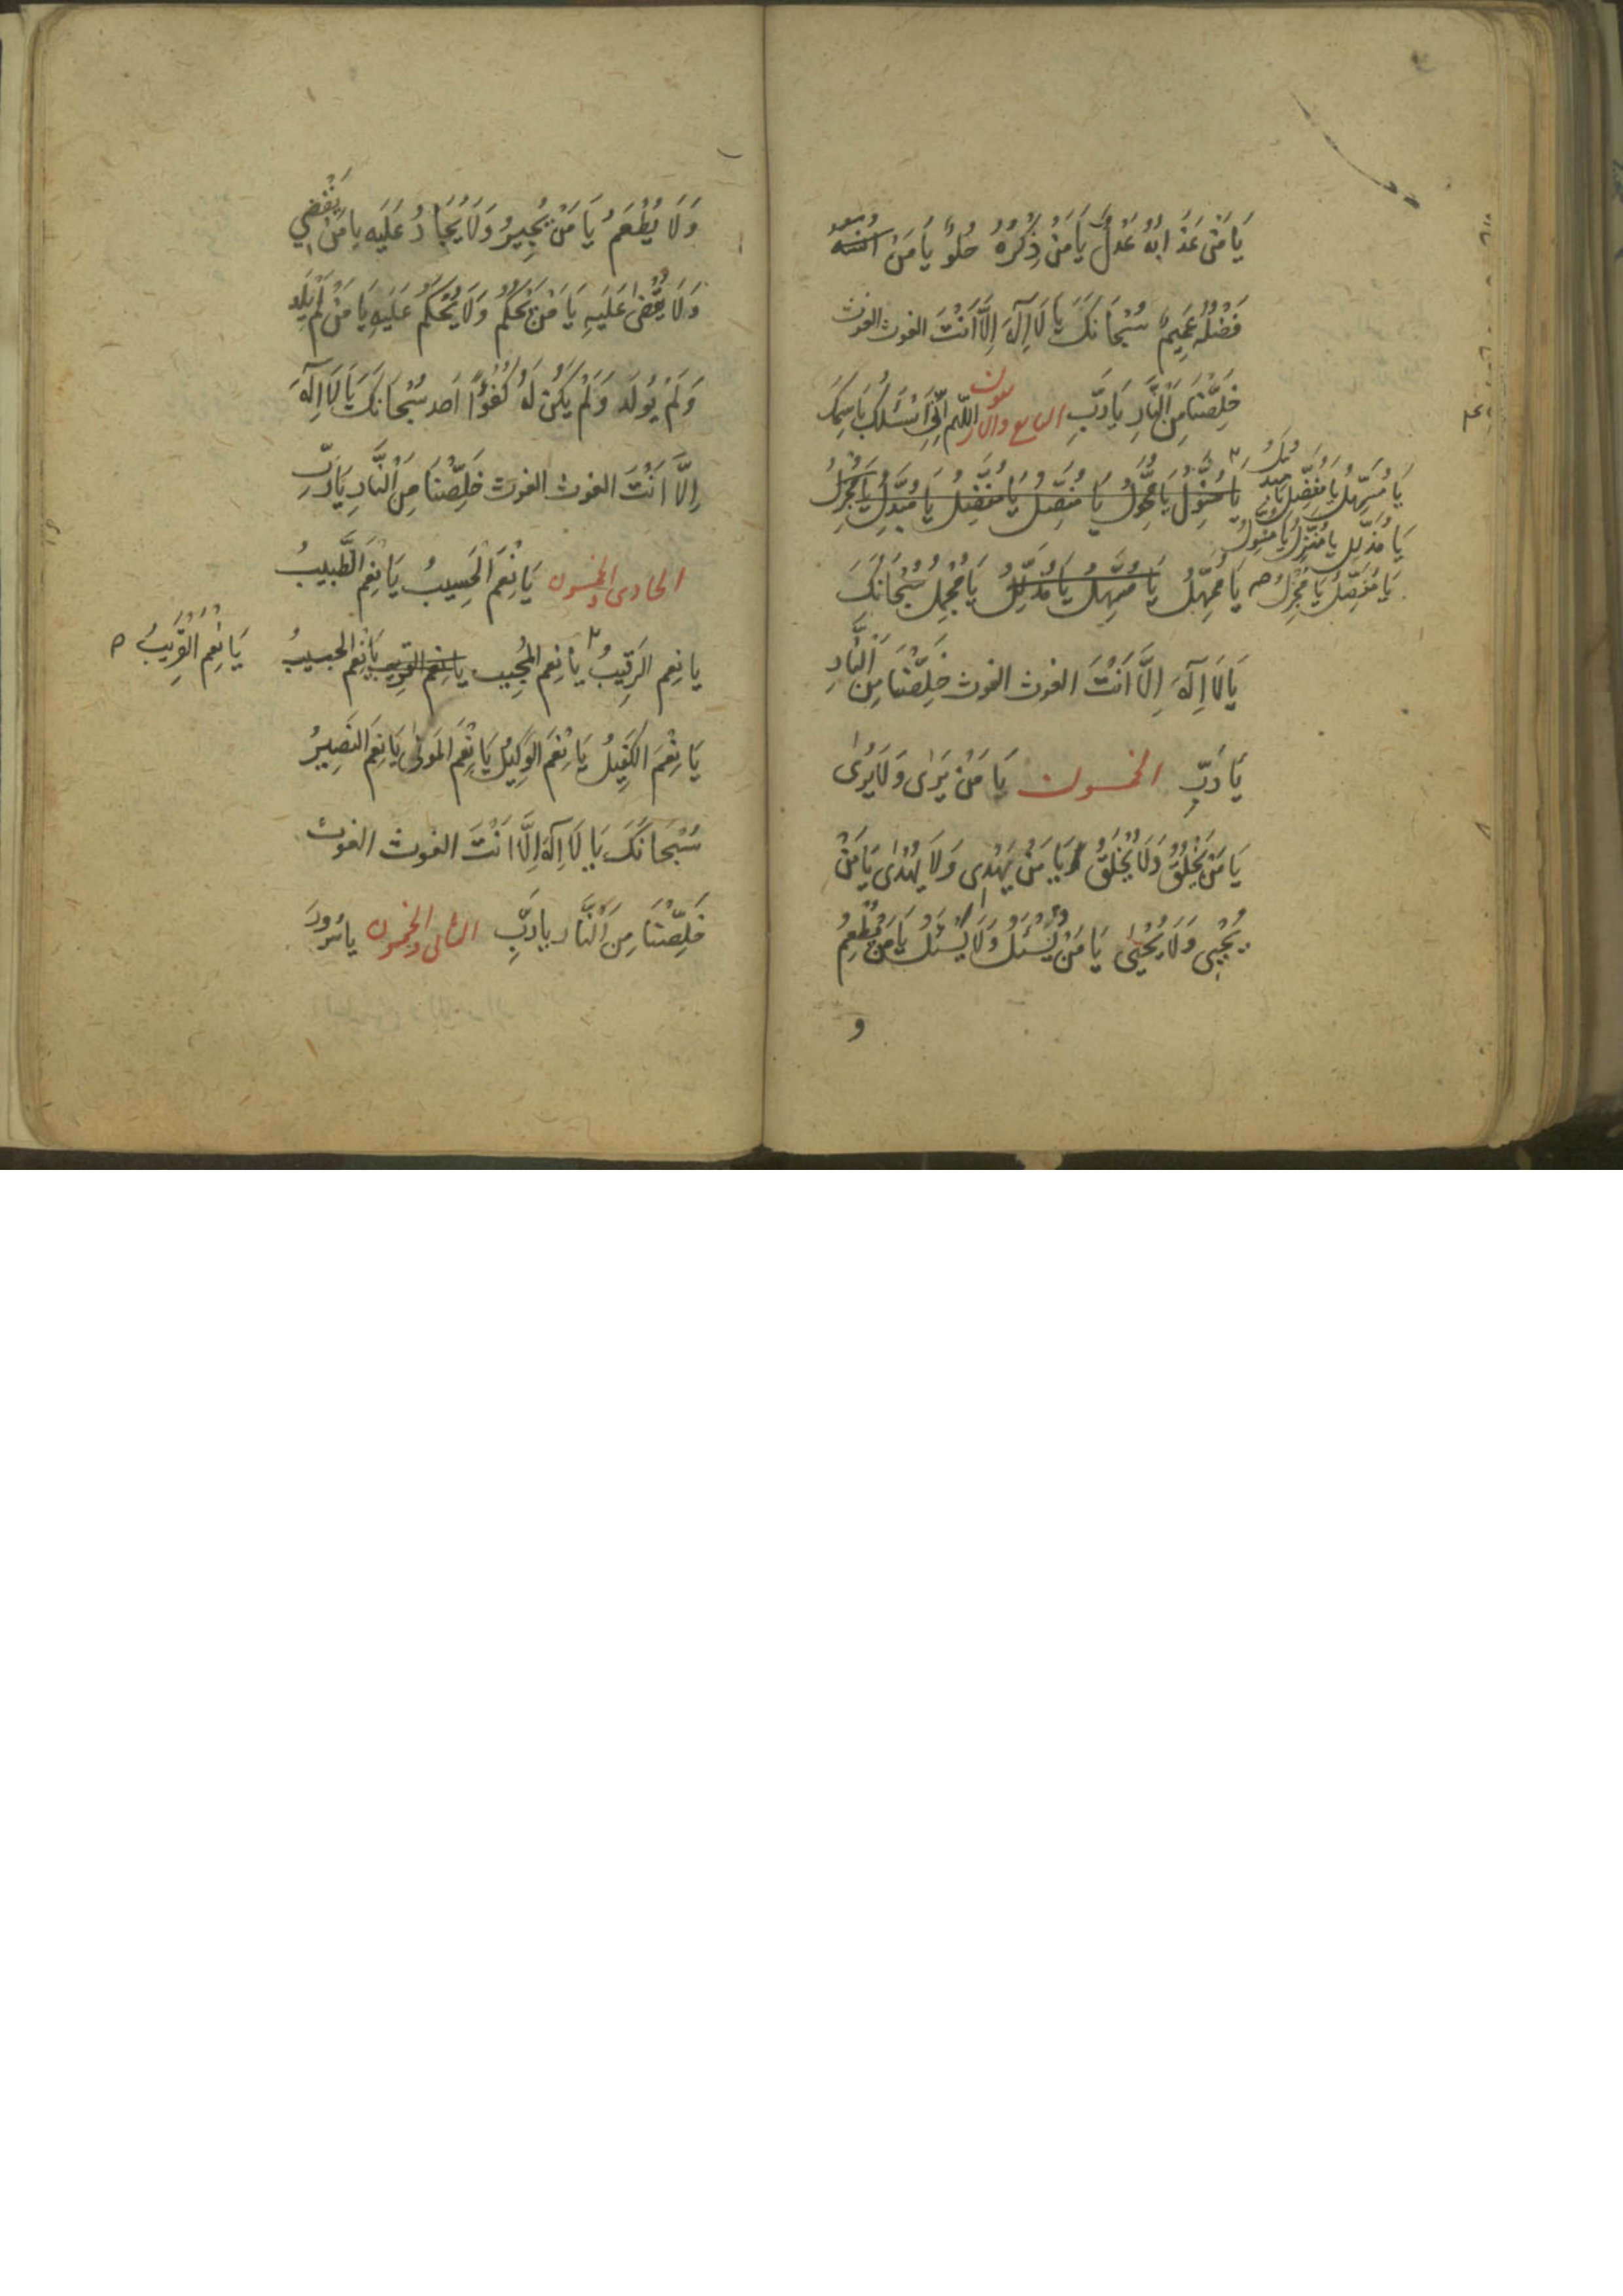 يَا مَنْ عَذَابُهُ عَدْلٌ يَا مَنْ ذِكْرُهُ حُلوٌ يَا مَنْ
فَضْلُهُ عَمِيمٌ سُبْحَانَكَ يَا لَا اِلَهَ اِلَّا اَنْتَ الغوث الغوث
خَلِّصْنَا مِنَ النَّارِ يَا رَبِّ التاسع والاربعون اللّهم اِنِّي اَسْئَلُكَ بِاسْمِكَ
يَا مُسَهِّلُ يَا مُفَضِّلُ يَا
يَا مُذَلِّلُ يَا مُنَزِّلُ يَا مُنَوِّلُ
يَا مُفَصِّلُ يَا مُجْزِلُ
يَا مُنَوِّلُ يَا مُحَوِّلُ يَا مُفَصِّلُ يَا مُفَضِّلُ يَا مُبَدِّلُ يَا مُجْزِلُ
يَا مُمْهِلُ يَا مُسَهِّلُ يَا مُذَلِّلُ يَا مُجْمِلُ سُبْحَانَكَ
يَا لَا اِلَهَ اِلَّا اَنْتَ الغوث الغوث خَلِّصْنَا مِنَ النَّارِ
يَا رَبِّ الخمسون يَا مَنْ يَرَى وَلَا يُرَى
يَا مَنْ يَخْلُقُ وَلَا يُخْلَقُ يَا مَنْ يَهْدِى وَلَا يُهْدَى يَا مَنْ
يُحْيِى وَلَا يُحْيَى يَا مَنْ يُسْئَلُ وَلَا يَسْئَلُ يَا مَنْ يُطْعِمُ
و
وَلَا يُطْعَمُ يَا مَنْ يُجِيرُ وَلَا يُجَارُ عَلَيْهِ يا مَنْ يَقْضِي
وَلَا يُقْضَى عَلَيهِ يَا مَنْ يَحْكُمُ وَلَا يُحْكَمُ عَلَيهِ يَا مَنْ لَمْ يَلِد
وَلَمْ يُولَد وَلَمْ يَكُنْ لَهُ كُفُوًا اَحد سُبْحَانَكَ يَا لَا اِلَهَ
اِلَّا اَنْتَ الغوث الغوث خَلِّصْنَا مِنَ النَّارِ يَا رَبِّ
الحادى والخمسون يَا نِعْمَ الْحَسِيبُ يَا نِعْمَ الطَّبِيبُ
يا نِعم الرَقِيبُ يَا نِعم المُجِيب يا نِعْمَ القَرِيب يَا نِعْمَ الحبيبُ
يَا نِعْمَ الْقَرِيبُ
يَا نِعْمَ الكَفِيلُ يَا نِعْمَ الوَكِيلُ يَا نِعْمَ المَولَى يَا نِعْمَ النَصِيرُ
سُبْحَانَكَ يَا لَا اِلَهَ اِلَّا اَنْتَ الغوث الغوث
خَلِّصْنَا مِنَ النَّار يا رَبِّ الثانى والخمسون يا سُرورَ